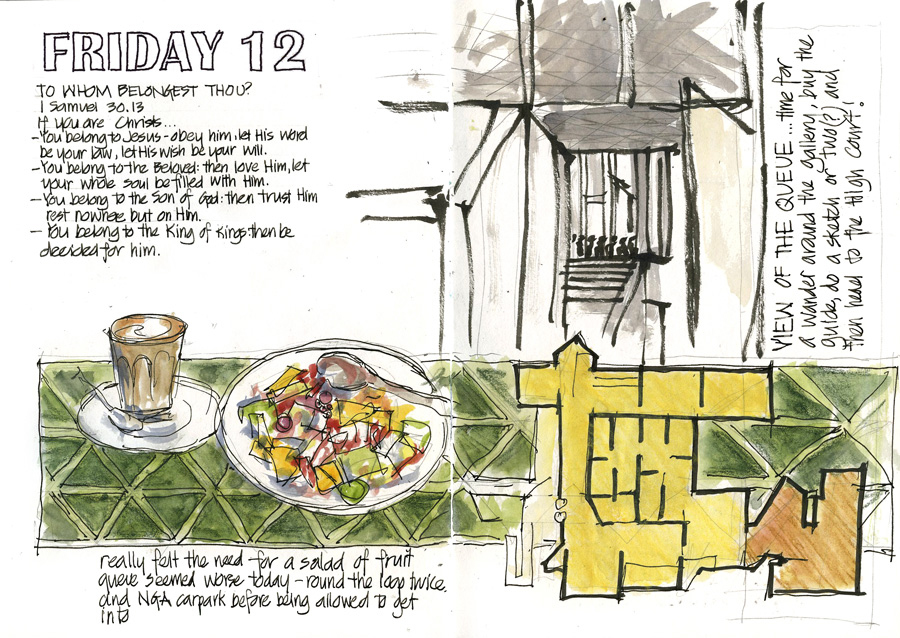 FRIDAY 12
TO WHOM BELONGEST THOU?
1 Samuel 30.13
If you are Christs...
- You belong to Jesus - obey him, let His word
be your law, let His wish be your will.
- You belong to the Beloved: then love Him, let
your whole soul be filled with Him.
- You belong to the Son of God: then trust Him
rest nowhere but on Him.
- You belong to the King of Kings: then be
decided for him.
VIEW OF THE QUEUE ... time for
a wander around the gallery, buy the
guide, do a sketch or two(?) and
then head to the High Court!
really felt the need - for a salad of fruit
queue seemed worse today - round the loop twice
and NGA carpark before being allowed to get
into